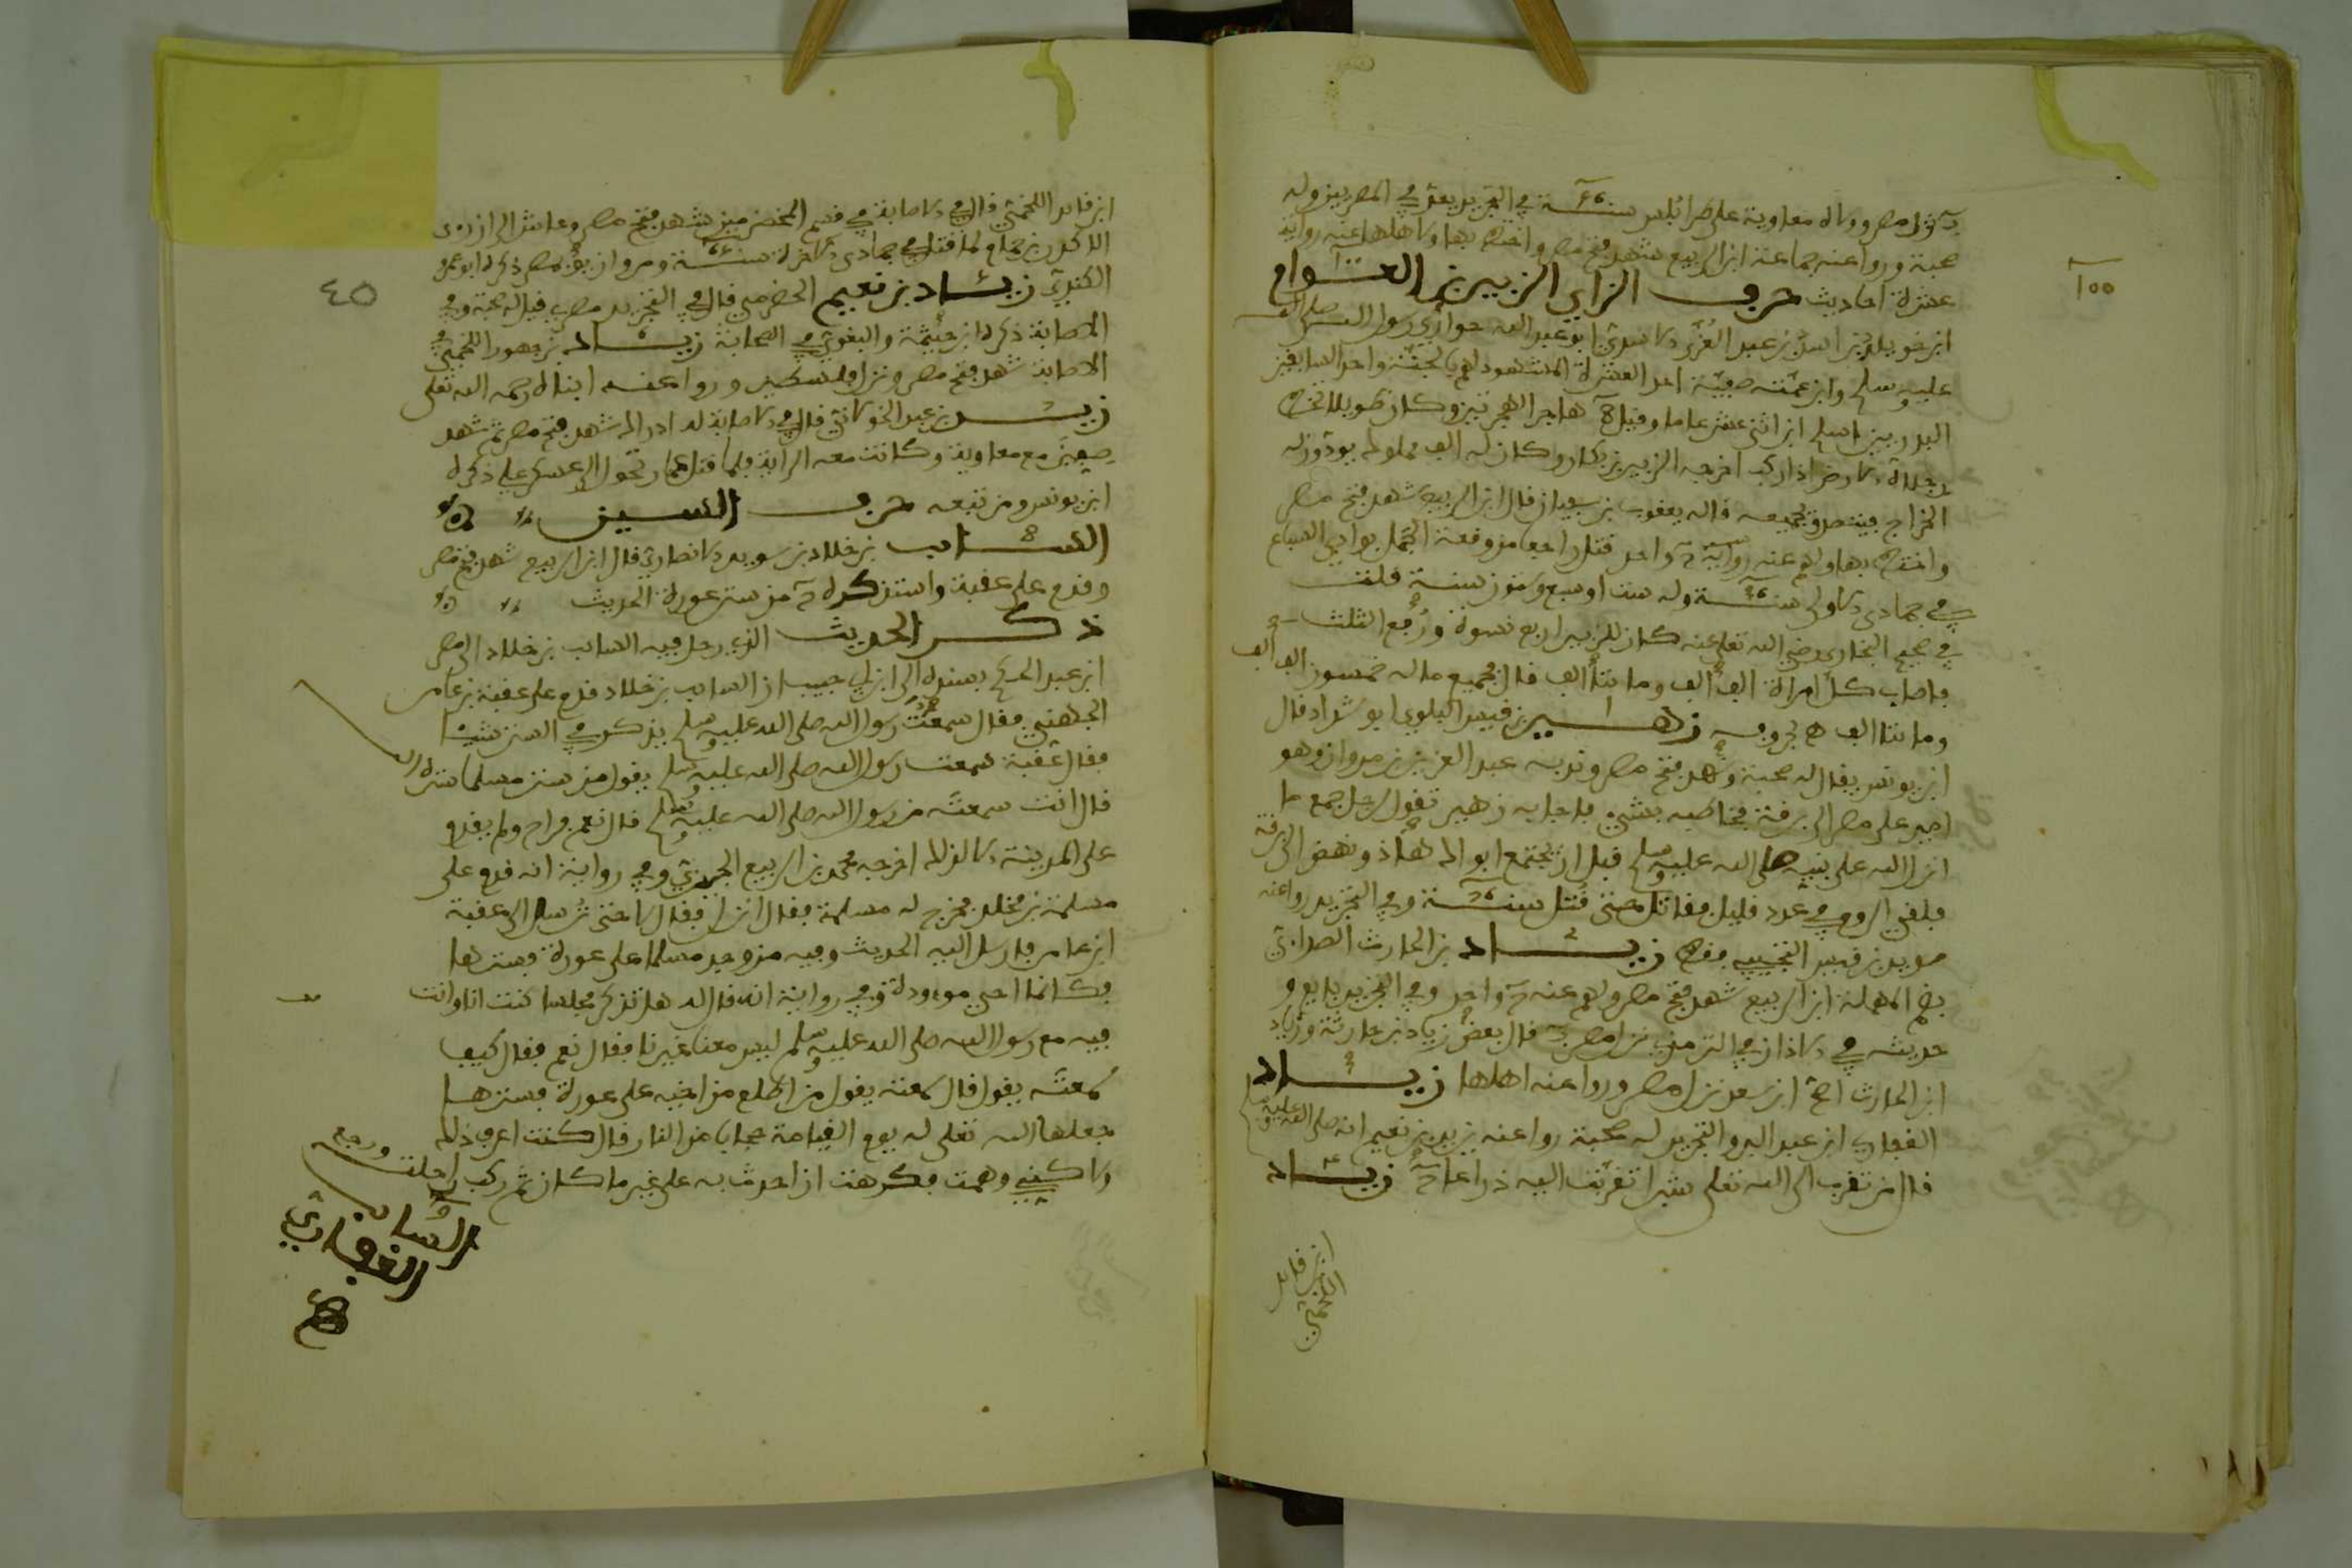 نزل مصر وولاه معاوية على طرابلس سنة ٤٦ في التجريد يعد في المصريين وله
صحبة وروا عنه جماعة ابن الربيع شهد فتح مصر واختط بها ولاهلها عنه رواية
عشرة احاديث حرف الزاي الزبير بن العوام
ابن خويلد بن اسد بن عبد العزى الاسدي ابو عبد الله حواري رسول الله صلى الله
عليه وسلم وابن عمته صفية احد العشرة المشهود لهم بالجنة واحد السابقين
البدريين اسلم ابن اثني عشر عاما وقيل ٨ هاجر الهجرتين وكان طويلا تخط
رجلاه الارض اذا ركب اخرجه الزبير بن بكار وكان له الف مملوك يودون له
الخراج فيتصدق بجميعه قاله يعقوب بن سفيان قال ابن الربيع شهد فتح مصر
واختط بها ولهم عنه رواية حديث واحد قتل راجعا من وقعة الجمل بوادي السباع
في جمادى الاولى سنة ٣٦ وله ست او سبع وستون سنة قلت
في صحيح البخاري رضي الله تعلى عنه كان للزبير اربع نسوة ورفع الثلث
فاصاب كل امراة الف الف ومائتا الف قال فجميع ماله خمسون الف الف
ومائتا الف زهير بن قيس البلوي ابو شداد قال
ابن يونس يقال له صحبة وشهد فتح مصر وندبه عبد العزيز بن مروان وهو
امير على مصر الى برقة فخاطبه بشيء فاجابه زهير تقول لرجل جمع ما
انزل الله على نبيه صلى الله عليه وسلم قبل ان يجتمع ابواك هذا ونهض الى برقة
فلقي الروم في عدد قليل فقاتل حتى قتل سنة ٧٦ وفي التجريد روا عنه
سويد بن قيس التجيبي فقط زياد بن الحارث الصدائي
بضم المهملة ابن الربيع شهد فتح مصر ولهم عنه حديث واحد وفي التجريد بايع و
حديثه في الاذان في الترمذي نزل مصر قال بعض زياد بن حارثة وزياد
ابن الحارث اصح ابن سعد نزل مصر وروا عنه اهلها زياد
الغفاري ابن عبد البر والتجريد له صحبة روا عنه يزيد بن نعيم انه صلى الله عليه وسلم
قال من تقرب الى الله تعلى شبرا تقربت اليه ذراعا زياد
ابن قايد
اللخمي
١٠٠
ابن قايد اللخمي قال في الاصابة في قسم المخضرمين شهد فتح مصر وعاش الى ان رثى
الاكدر بن حمام لما قتل في جمادى الاخرة سنة ومروان يوم بمصر ذكره ابو عمر
الكندي زياد بن نعيم الحضرمي قال في التجريد مصري قيل له صحبة وفي
الاصابة ذكره ابن خيثمة والبغوي في الصحابة زياد بن جهور اللخمي في
الاصابة شهد فتح مصر ونزل فلسطين وروا عنه ابناه رحمه الله تعلى
زبيد بن عبد الخولاني قال في الاصابة له ادراك شهد فتح مصر ثم شهد
صفين مع معاوية وكانت معه الراية فلما قتل عمار تحول الى عسكر علي ذكره
ابن يونس ومن تبعه حرف السين
السائب بن خلاد بن سويد الانصاري قال ابن الربيع شهد فتح مصر
وقدم على عقبة واستذكره حديث من ستر عورة الحديث
ذكر الحديث الذي رحل فيه السائب بن خلاد الى مصر
ابن عبد الحكم بسنده الى ابن ابي حبيب ان السائب بن خلاد قدم على عقبة بن عامر
الجهني فقال سمعت رسول الله صلى الله عليه وسلم يذكر في الستر شيئا
فقال عقبة سمعت رسول الله صلى الله عليه وسلم يقول من ستر مسلما ستره الله
قال انت سمعته من رسول الله صلى الله عليه وسلم قال نعم فراح ولم يقدم
على المدينة الا لذلك اخرجه محمد بن الربيع الجيزي وفي رواية انه قدم على
مسلمة بن مخلد فخرج له مسلمة فقال انزل فقال لا حتى ترسل الى عقبة
ابن عامر فارسل اليه الحديث وفيه من وجد مسلما على عورة فسترها
فكانما احيى موءودة وفي رواية انه قال له هل تذكر مجلسا كنت انا وانت
فيه مع رسول الله صلى الله عليه وسلم ليس معنا غيرنا فقال نعم فقال كيف
سمعته يقول قال سمعته يقول من اطلع من اخيه على عورة فسترها
جعلها الله تعلى له يوم القيامة حجابا من النار قال كنت اعرف ذلك
ولاكني وهمت فكرهت ان احدث به على غير ما كان ثم ركب راحلته ورجع
السائب
الغفاري
٤٥